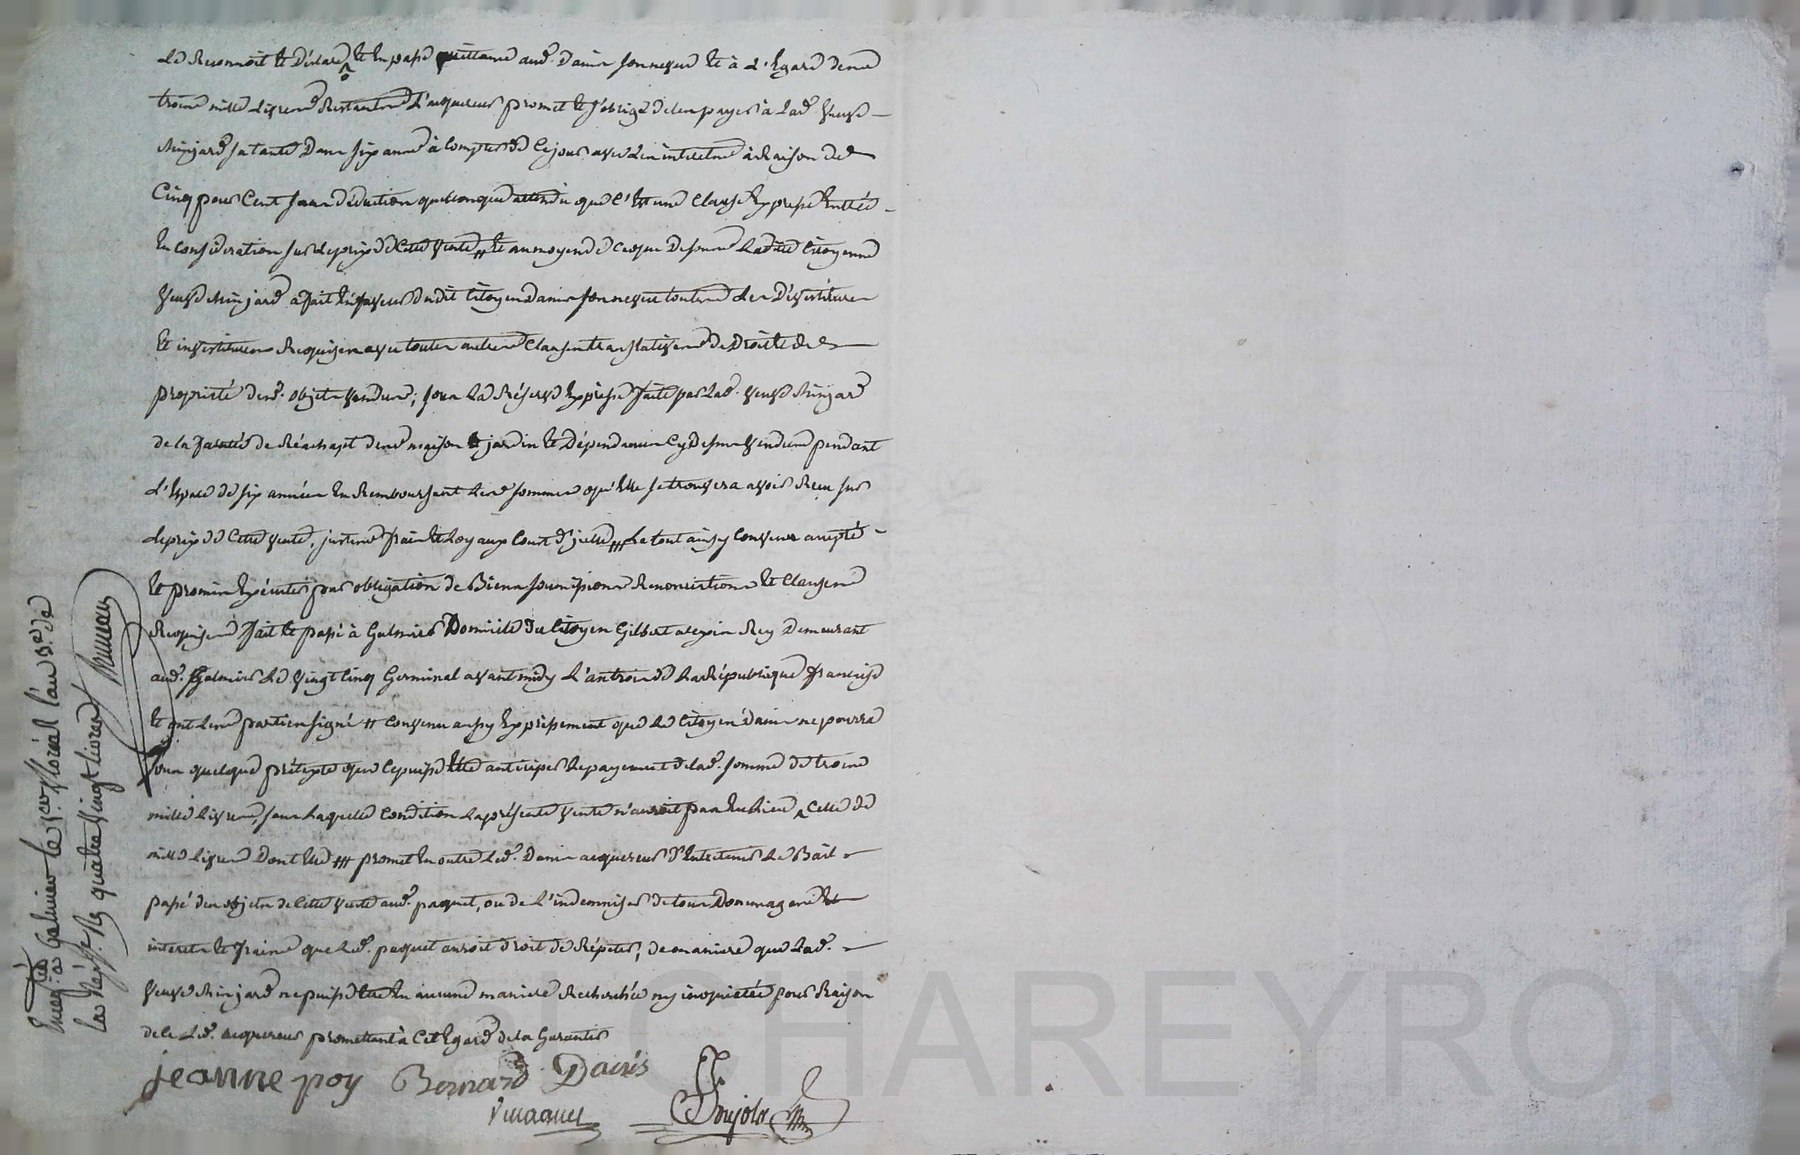 Le Reconnoit et Déclare et En passe quittance aud. Danis son neveu Et à L'Egard des
trois mille Livres Restantes L'acquereur promet et s'oblige de les payer à Lad. veuve
Minjard sa tante Dans six années à Compter de Ce jour avec Les intérêts à Raison de
Cinq pour Cent sans Déduction quelconque attendu que C'Est une Clause Expresse Entrée
En Considération sur le prix de Cette vente // Et au moyen de Ce que Dessus Ladite Citoyenne
veuve Minjard a fait En faveur dudit Citoyen Danis son neveu toutes Les Dévestitures
Et investitures Requises avec toutes autres Clauses translatives de Droits de
propriété desd. objets vendus; sous La Réserve Expresse faite par Lad. veuve Minjard
de la faculté de Réachapt desd. maison jardin Et Dépendances Cy Dessus vendus pendant
L'Espace de six années En Remboursant Les sommes qu'Elle se trouvera avoir Reçu sur
Le prix de Cette vente, justes frais Et Loyaux Couts d'jcelle /// Le tout ainsy Convenu accepté
Et promis Exécuter par obligation de Biens soumissions Renonciations Et Clauses
Requises fait Et passé à Galmier Domicile du Citoyen Gilbert Rey Demeurant
aud. Galmier Le vingt Cinq Germinal avant midy L'an trois de La République française
Et ont Les parties signé // Convenu aussy Expressement que Le Citoyen Danis ne pourra
sous quelque prétexte que Ce puisse Etre anticiper Le payement de lad. somme de trois
mille Livres, sans Laquelle Condition La présente vente n'auroit pas Eu Lieu Celle de
mille Livres Dont Elle /// promet En outre Led. Danis acquereur d'Entretenir Le Bail
passé des objets de Cette vente aud. paquet, ou de L'indemniser de tous Dommages Et
interets Et frais que Led. paquet auroit droit de Répéter, de maniere que Lad.
veuve Minjard ne puisse Etre En aucune maniere Recherchée ny inquietée pour Raison
de ce Led. acquereur promettant à Cet Egard de la Garantir
jeanne poy Bernard Danis
Pujol
Enreg. à Galmier le 1er floréal l'an 3e de
la Rép. quatre vingt livres Bruneau
CHAREYRON